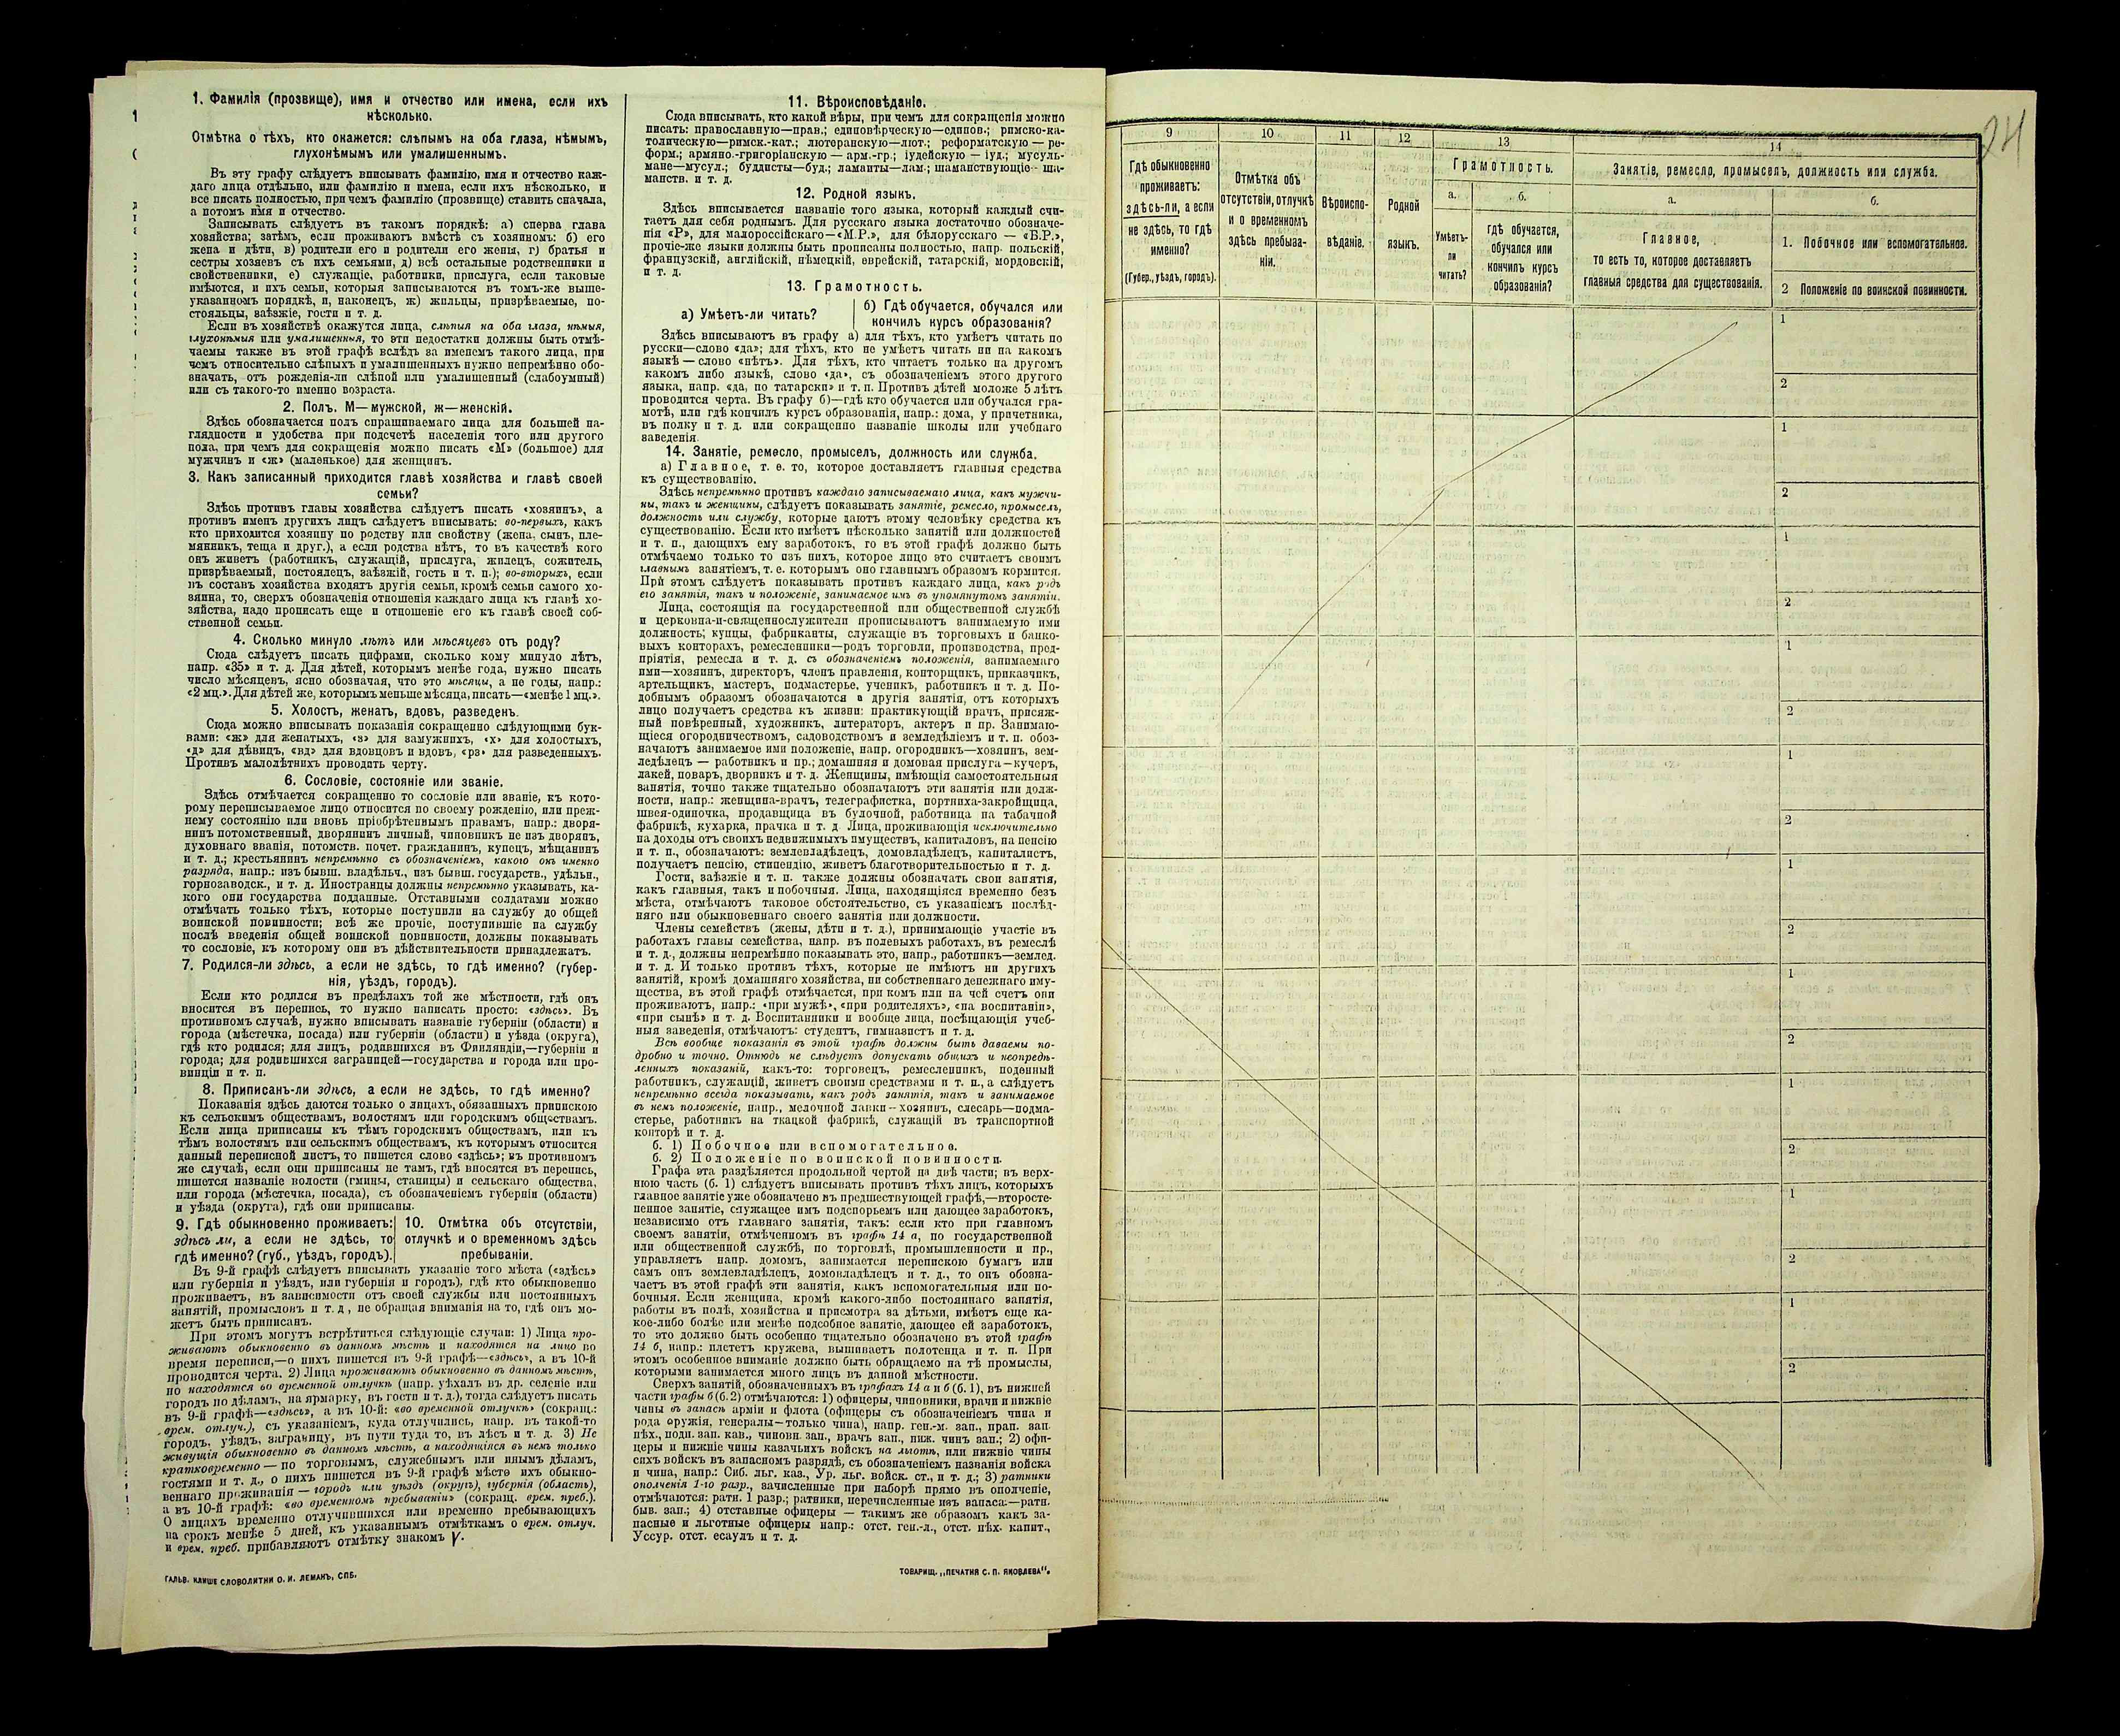 1. Фамилія (прозвище), имя и отчество или имена, если ихъ
нѣсколько.
Отмѣтка о тѣхъ, кто окажется: слѣпымъ на оба глаза, нѣмымъ,
глухонѣмымъ или умалишеннымъ.
Въ эту графу слѣдуетъ вписывать фамилію, имя и отчество каж-
даго лица отдѣльно, или фамилію и имена, если ихъ нѣсколько, и
все писать полностью, при чемъ фамилію (прозвище) ставить сначала,
а потомъ имя и отчество.
Записывать слѣдуетъ въ такомъ порядкѣ: а) сперва глава
хозяйства; затѣмъ, если проживаютъ вмѣстѣ съ хозяиномъ: б) его
жена и дѣти, в) родители его и родители его жены, г) братья и
сестры хозяевъ съ ихъ семьями, д) всѣ остальные родственники и
свойственники, е) служащіе, работники, прислуга, если таковые
имѣются, и ихъ семьи, которыя записываются въ томъ-же выше-
указанномъ порядкѣ, и, наконецъ, ж) жильцы, призрѣваемые, по-
стояльцы, заѣзжіе, гости и т. д.
Если въ хозяйствѣ окажутся лица, слѣпыя на оба глаза, нѣмыя,
глухонѣмыя или умалишенныя, то эти недостатки должны быть отмѣ-
чаемы также въ этой графѣ вслѣдъ за именемъ такого лица, при
чемъ относительно слѣпыхъ и умалишенныхъ нужно непремѣнно обо-
значать, отъ рожденія-ли слѣпой или умалишенный (слабоумный)
или съ такого-то именно возраста.
2. Полъ. М—мужской, ж—женскій.
Здѣсь обозначается полъ спрашиваемаго лица для большей на-
глядности и удобства при подсчетѣ населенія того или другого
пола, при чемъ для сокращенія можно писать «М» (большое) для
мужчинъ и «ж» (маленькое) для женщинъ.
3. Какъ записанный приходится главѣ хозяйства и главѣ своей
семьи?
Здѣсь противъ главы хозяйства слѣдуетъ писать «хозяинъ», а
противъ именъ другихъ лицъ слѣдуетъ вписывать: во-первыхъ, какъ
кто приходится хозяину по родству или свойству (жена, сынъ, пле-
мянникъ, теща и друг.), а если родства нѣтъ, то въ качествѣ кого
онъ живетъ (работникъ, служащій, прислуга, жилецъ, сожитель,
призрѣваемый, постоялецъ, заѣзжій, гость и т. п.); во-вторыхъ, если
въ составъ хозяйства входятъ другія семьи, кромѣ семьи самого хо-
зяина, то, сверхъ обозначенія отношенія каждаго лица къ главѣ хо-
зяйства, надо прописать еще и отношеніе его къ главѣ своей соб-
ственной семьи.
4. Сколько минуло лѣтъ или мѣсяцевъ отъ роду?
Сюда слѣдуетъ писать цифрами, сколько кому минуло лѣтъ,
напр. «35» и т. д. Для дѣтей, которымъ менѣе года, нужно писать
число мѣсяцевъ, ясно обозначая, что это мѣсяцы, а не годы, напр.:
«2 мц.». Для дѣтей же, которымъ меньше мѣсяца, писать—«менѣе 1 мц.».
5. Холостъ, женатъ, вдовъ, разведенъ.
Сюда можно вписывать показанія сокращенно слѣдующими бук-
вами: «ж» для женатыхъ, «з» для замужнихъ, «х» для холостыхъ,
«д» для дѣвицъ, «вд» для вдовцовъ и вдовъ, «рз» для разведенныхъ.
Противъ малолѣтнихъ проводить черту.
6. Сословіе, состояніе или званіе.
Здѣсь отмѣчается сокращенно то сословіе или званіе, къ кото-
рому переписываемое лицо относится по своему рожденію, или преж-
нему состоянію или вновь пріобрѣтеннымъ правамъ, напр.: дворя-
нинъ потомственный, дворянинъ личный, чиновникъ не изъ дворянъ,
духовнаго званія, потомств. почет. гражданинъ, купецъ, мѣщанинъ
и т. д.; крестьянинъ непремѣнно съ обозначеніемъ, какого онъ именно
разряда, напр.: изъ бывш. владѣльч., изъ бывш. государств., удѣльн.,
горнозаводск., и т. д. Иностранцы должны непремѣнно указывать, ка-
кого они государства подданные. Отставными солдатами можно
отмѣчать только тѣхъ, которые поступили на службу до общей
воинской повинности; всѣ же прочіе, поступившіе на службу
послѣ введенія общей воинской повинности, должны показывать
то сословіе, къ которому они въ дѣйствительности принадлежатъ.
7. Родился-ли здѣсь, а если не здѣсь, то гдѣ именно? (губер-
нія, уѣздъ, городъ).
Если кто родился въ предѣлахъ той же мѣстности, гдѣ онъ
вносится въ перепись, то нужно написать просто: «здѣсь». Въ
противномъ случаѣ, нужно вписывать названіе губерніи (области) и
города (мѣстечка, посада) или губерніи (области) и уѣзда (округа),
гдѣ кто родился; для лицъ, родавшихся въ Финляндіи,—губерніи и
города; для родившихся заграницей—государства и города или про-
винціи и т. п.
8. Приписанъ-ли здѣсь, а если не здѣсь, то гдѣ именно?
Показанія здѣсь даются только о лицахъ, обязанныхъ припискою
къ сельскимъ обществамъ, волостямъ или городскимъ обществамъ.
Если лица приписаны къ тѣмъ городскимъ обществамъ, или къ
тѣмъ волостямъ или сельскимъ обществамъ, къ которымъ относится
данный переписной листъ, то пишется слово «здѣсь»; въ противномъ
же случаѣ, если они приписаны не тамъ, гдѣ вносятся въ перепись,
пишется названіе волости (гмины, станицы) и сельскаго общества,
или города (мѣстечка, посада), съ обозначеніемъ губерніи (области)
и уѣзда (округа), гдѣ они приписаны.
9. Гдѣ обыкновенно проживаетъ:
здѣсь ли, а если не здѣсь, то
гдѣ именно? (губ., уѣздъ, городъ).
10. Отмѣтка объ отсутствіи,
отлучкѣ и о временномъ здѣсь
пребываніи.
Въ 9-й графѣ слѣдуетъ вписывать указаніе того мѣста («здѣсь»
или губернія и уѣздъ, или губернія и городъ), гдѣ кто обыкновенно
проживаетъ, въ зависимости отъ своей службы или постоянныхъ
занятій, промысловъ и т. д., не обращая вниманія на то, гдѣ онъ мо-
жетъ быть приписанъ.
При этомъ могутъ встрѣтиться слѣдующіе случаи: 1) Лица про-
живаютъ обыкновенно въ данномъ мѣстѣ и находятся на лицо во
время переписи,—о нихъ пишется въ 9-й графѣ—«здѣсь», а въ 10-й
проводится черта. 2) Лица проживаютъ обыкновенно въ данномъ мѣстѣ,
но находятся во временной отлучкѣ (напр. уѣхалъ въ др. селеніе или
городъ по дѣламъ, на ярмарку, въ гости и т. д.), тогда слѣдуетъ писать
въ 9-й графѣ—«здѣсь», а въ 10-й: «во временной отлучкѣ» (сокращ.:
врем. отлуч.), съ указаніемъ, куда отлучились, напр. въ такой-то
городъ, уѣздъ, заграницу, въ пути туда то, въ лѣсъ и т. д. 3) Не
живущія обыкновенно въ данномъ мѣстѣ, а находящіяся въ немъ только
кратковременно—по торговымъ, служебнымъ или инымъ дѣламъ,
гостями и т. д., о нихъ пишется въ 9-й графѣ мѣсто ихъ обыкно-
веннаго проживанія—городъ или уѣздъ (округъ), губернія (область),
а въ 10-й графѣ: «во временномъ пребываніи» (сокращ. врем. преб.).
О лицахъ временно отлучившихся или временно пребывающихъ
на срокъ менѣе 5 дней, къ указаннымъ отмѣткамъ о врем. отлуч.
и врем. преб. прибавляютъ отмѣтку знакомъ V.
ГАЛЬВ. КЛИШЕ СЛОВОЛИТНИ О. И. ЛЕМАНЪ, СПБ.
11. Вѣроисповѣданіе.
Сюда вписывать, кто какой вѣры, при чемъ для сокращенія можно
писать: православную—прав.; единовѣрческую—единов.; римско-ка-
толическую—римск.-кат.; лютеранскую—лют.; реформатскую — ре-
форм.; армяно.-григоріанскую — арм.-гр.; іудейскую — іуд.; мусуль-
мане—мусул.; буддисты—буд.; ламаиты—лам.; шаманствующіе—ша-
манств. и т. д.
12. Родной языкъ.
Здѣсь вписывается названіе того языка, который каждый счи-
таетъ для себя роднымъ. Для русскаго языка достаточно обозначе-
нія «Р», для малороссійскаго—«М.Р.», для бѣлорусскаго — «Б.Р.»,
прочіе-же языки должны быть прописаны полностью, напр. польскій,
французскій, англійскій, нѣмецкій, еврейскій, татарскій, мордовскій,
и т. д.
13. Грамотность.
а) Умѣетъ-ли читать?
б) Гдѣ обучается, обучался или
кончилъ курсъ образованія?
Здѣсь вписываютъ въ графу а) для тѣхъ, кто умѣетъ читать по
русски—слово «да»; для тѣхъ, кто не умѣетъ читать ни на какомъ
языкѣ — слово «нѣтъ». Для тѣхъ, кто читаетъ только на другомъ
какомъ либо языкѣ, слово «да», съ обозначеніемъ этого другого
языка, напр. «да, по татарски» и т. п. Противъ дѣтей моложе 5 лѣтъ
проводится черта. Въ графу б)—гдѣ кто обучается или обучался гра-
мотѣ, или гдѣ кончилъ курсъ образованія, напр.: дома, у причетника,
въ полку и т. д. или сокращенно названіе школы или учебнаго
заведенія.
14. Занятіе, ремесло, промыселъ, должность или служба.
а) Главное, т. е. то, которое доставляетъ главныя средства
къ существованію.
Здѣсь непремѣнно противъ каждаго записываемаго лица, какъ мужчи-
ны, такъ и женщины, слѣдуетъ показывать занятіе, ремесло, промыселъ,
должность или службу, которые даютъ этому человѣку средства къ
существованію. Если кто имѣетъ нѣсколько занятій или должностей
и т. п., дающихъ ему заработокъ, то въ этой графѣ должно быть
отмѣчаемо только то изъ нихъ, которое лицо это считаетъ своимъ
главнымъ занятіемъ, т. е. которымъ оно главнымъ образомъ кормится.
При этомъ слѣдуетъ показывать противъ каждаго лица, какъ родъ
его занятія, такъ и положеніе, занимаемое имъ въ упомянутомъ занятіи.
Лица, состоящія на государственной или общественной службѣ
и церковно-и-священнослужители прописываютъ занимаемую ими
должность; купцы, фабриканты, служащіе въ торговыхъ и банко-
выхъ конторахъ, ремесленники—родъ торговли, производства, пред-
пріятія, ремесла и т. д. съ обозначеніемъ положенія, занимаемаго
ими—хозяинъ, директоръ, членъ правленія, конторщикъ, приказчикъ,
артельщикъ, мастеръ, подмастерье, ученикъ, работникъ и т. д. По-
добнымъ образомъ обозначаются и другія занятія, отъ которыхъ
лицо получаетъ средства къ жизни: практикующій врачъ, присяж-
ный повѣренный, художникъ, литераторъ, актеръ и пр. Занимаю-
щіеся огородничествомъ, садоводствомъ и земледѣліемъ и т. п. обоз-
начаютъ занимаемое ими положеніе, напр. огородникъ—хозяинъ, зем-
ледѣлецъ — работникъ и пр.; домашняя и домовая прислуга—кучеръ,
лакей, поваръ, дворникъ и т. д. Женщины, имѣющія самостоятельныя
занятія, точно также тщательно обозначаютъ эти занятія или долж-
ности, напр.: женщина-врачъ, телеграфистка, портниха-закройщица,
швея-одиночка, продавщица въ булочной, работница на табачной
фабрикѣ, кухарка, прачка и т. д. Лица, проживающія исключительно
на доходы отъ своихъ недвижимыхъ имуществъ, капиталовъ, на пенсію
и т. п., обозначаютъ: землевладѣлецъ, домовладѣлецъ, капиталистъ,
получаетъ пенсію, стипендію, живетъ благотворительностью и т. д.
Гости, заѣзжіе и т. п. также должны обозначать свои занятія,
какъ главныя, такъ и побочныя. Лица, находящіяся временно безъ
мѣста, отмѣчаютъ таковое обстоятельство, съ указаніемъ послѣд-
няго или обыкновеннаго своего занятія или должности.
Члены семействъ (жены, дѣти и т. д.), принимающіе участіе въ
работахъ главы семейства, напр. въ полевыхъ работахъ, въ ремеслѣ
и т. д., должны непремѣнно показывать это, напр., работникъ—землед.
и т. д. И только противъ тѣхъ, которые не имѣютъ ни другихъ
занятій, кромѣ домашняго хозяйства, ни собственнаго денежнаго иму-
щества, въ этой графѣ отмѣчается, при комъ или на чей счетъ они
проживаютъ, напр.: «при мужѣ», «при родителяхъ», «на воспитаніи»,
«при сынѣ» и т. д. Воспитанники и вообще лица, посѣщающія учеб-
ныя заведенія, отмѣчаютъ: студентъ, гимназистъ и т. д.
Всѣ вообще показанія въ этой графѣ должны быть даваемы по-
дробно и точно. Отнюдь не слѣдуетъ допускать общихъ и неопредѣ-
ленныхъ показаній, какъ-то: торговецъ, ремесленникъ, поденный
работникъ, служащій, живетъ своими средствами и т. п., а слѣдуетъ
непремѣнно всегда показывать, какъ родъ занятія, такъ и занимаемое
въ немъ положеніе, напр., мелочной лавки—хозяинъ, слесарь—подма-
стерье, работникъ на ткацкой фабрикѣ, служащій въ транспортной
конторѣ и т. д.
б. 1) Побочное или вспомогательное.
б. 2) Положеніе по воинской повинности.
Графа эта раздѣляется продольной чертой на двѣ части; въ верх-
нюю часть (б. 1) слѣдуетъ вписывать противъ тѣхъ лицъ, которыхъ
главное занятіе уже обозначено въ предшествующей графѣ,—второсте-
пенное занятіе, служащее имъ подспорьемъ или дающее заработокъ,
независимо отъ главнаго занятія, такъ: если кто при главномъ
своемъ занятіи, отмѣченномъ въ графѣ 14 а, по государственной
или общественной службѣ, по торговлѣ, промышленности и пр.,
управляетъ напр. домомъ, занимается перепискою бумагъ или
самъ онъ землевладѣлецъ, домовладѣлецъ и т. д., то онъ обозна-
чаетъ въ этой графѣ эти занятія, какъ вспомогательныя или по-
бочныя. Если женщина, кромѣ какого-либо постояннаго занятія,
работы въ полѣ, хозяйства и присмотра за дѣтьми, имѣетъ еще ка-
кое-либо болѣе или менѣе подсобное занятіе, дающее ей заработокъ,
то это должно быть особенно тщательно обозначено въ этой графѣ
14 б, напр.: плететъ кружева, вышиваетъ полотенца и т. п. При
этомъ особенное вниманіе должно быть обращаемо на тѣ промыслы,
которыми занимается много лицъ въ данной мѣстности.
Сверхъ занятій, обозначенныхъ въ графахъ 14 а и б (б. 1), въ нижней
части графы б (б. 2) отмѣчаются: 1) офицеры, чиновники, врачи и нижніе
чины въ запасѣ арміи и флота (офицеры съ обозначеніемъ чина и
рода оружія, генералы—только чина), напр. ген.-м. зап., прап. зап.
пѣх., подп. зап. кав., чиновн. зап., врачъ зап., ниж. чинъ зап.; 2) офи-
церы и нижніе чины казачьихъ войскъ на льготѣ, или нижніе чины
сихъ войскъ въ запасномъ разрядѣ, съ обозначеніемъ названія войска
и чина, напр.: Сиб. льг. каз., Ур. льг. войск. ст., и т. д.; 3) ратники
ополченія 1-го разр., зачисленные при наборѣ прямо въ ополченіе,
отмѣчаются: ратн. 1 разр.; ратники, перечисленные изъ запаса:—ратн.
быв. зап.; 4) отставные офицеры — такимъ же образомъ какъ за-
пасные и льготные офицеры напр.: отст. ген.-л., отст. пѣх. капит.,
Уссур. отст. есаулъ и т. д.
ТОВАРИЩ. „ПЕЧАТНЯ С. П. ЯКОВЛЕВА“.
24
9
10
11
12
13
14
Гдѣ обыкновенно
проживаетъ:
здѣсь-ли, а если
не здѣсь, то гдѣ
именно?
(Губер., уѣздъ, городъ).
Отмѣтка объ
отсутствіи, отлучкѣ
и о временномъ
здѣсь пребыва-
ніи.
Вѣроиспо-
вѣданіе.
Родной
языкъ.
Грамотность.
а.
Умѣетъ-
ли
читать?
б.
гдѣ обучается,
обучался или
кончилъ курсъ
образованія?
Занятіе, ремесло, промыселъ, должность или служба.
а.
Главное,
то есть то, которое доставляетъ
главныя средства для существованія.
б.
1. Побочное или вспомогательное.
2 Положеніе по воинской повинности.
1
2
1
2
1
2
1
2
1
2
1
2
1
2
1
2
1
2
1
2